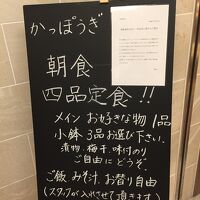 かっぽうぎ
朝食
四品定食!!
メイン お好きな物1品
小鉢 3品お選び下さい。
漬物、梅干、味付のり
ご自由にどうぞ
ご飯、みそ汁、お替り自由
(スタッフが入れさせて頂きます)